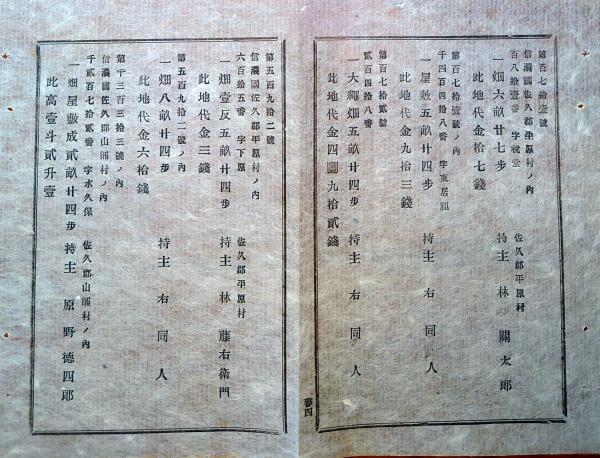 第百七拾壹號
信濃國佐久郡平原村ノ內
百八拾壹番 字祝堂 佐久郡平原村
一畑六畝廿七步 持主 林 關太郎
此地代金拾七錢
第百七拾壹號ノ內
千四百四拾八番 字東居祖
一屋敷五畝廿四步 持主 右同人
此地代金九拾三錢
第百七拾壹號
貳百四拾八番
一大繩畑五畝廿四步 持主 右同人
此地代金四圓九拾貳錢
第五百九拾二號
信濃國佐久郡平原村ノ內
六百拾五番 字下原 佐久郡平原村
一畑壹反五畝廿四步 持主 林 藤右衛門
此地代金三錢
第五百九拾二號ノ內
一畑八畝廿四步 持主 右同人
此地代金六拾錢
第千三百三拾三號ノ內
信濃國佐久郡山浦村ノ內
千貳百七拾貳番 字水久保 佐久郡山浦村ノ內
一畑屋敷成貳畝廿四步 持主 原野德四郎
此高壹斗貳升壹